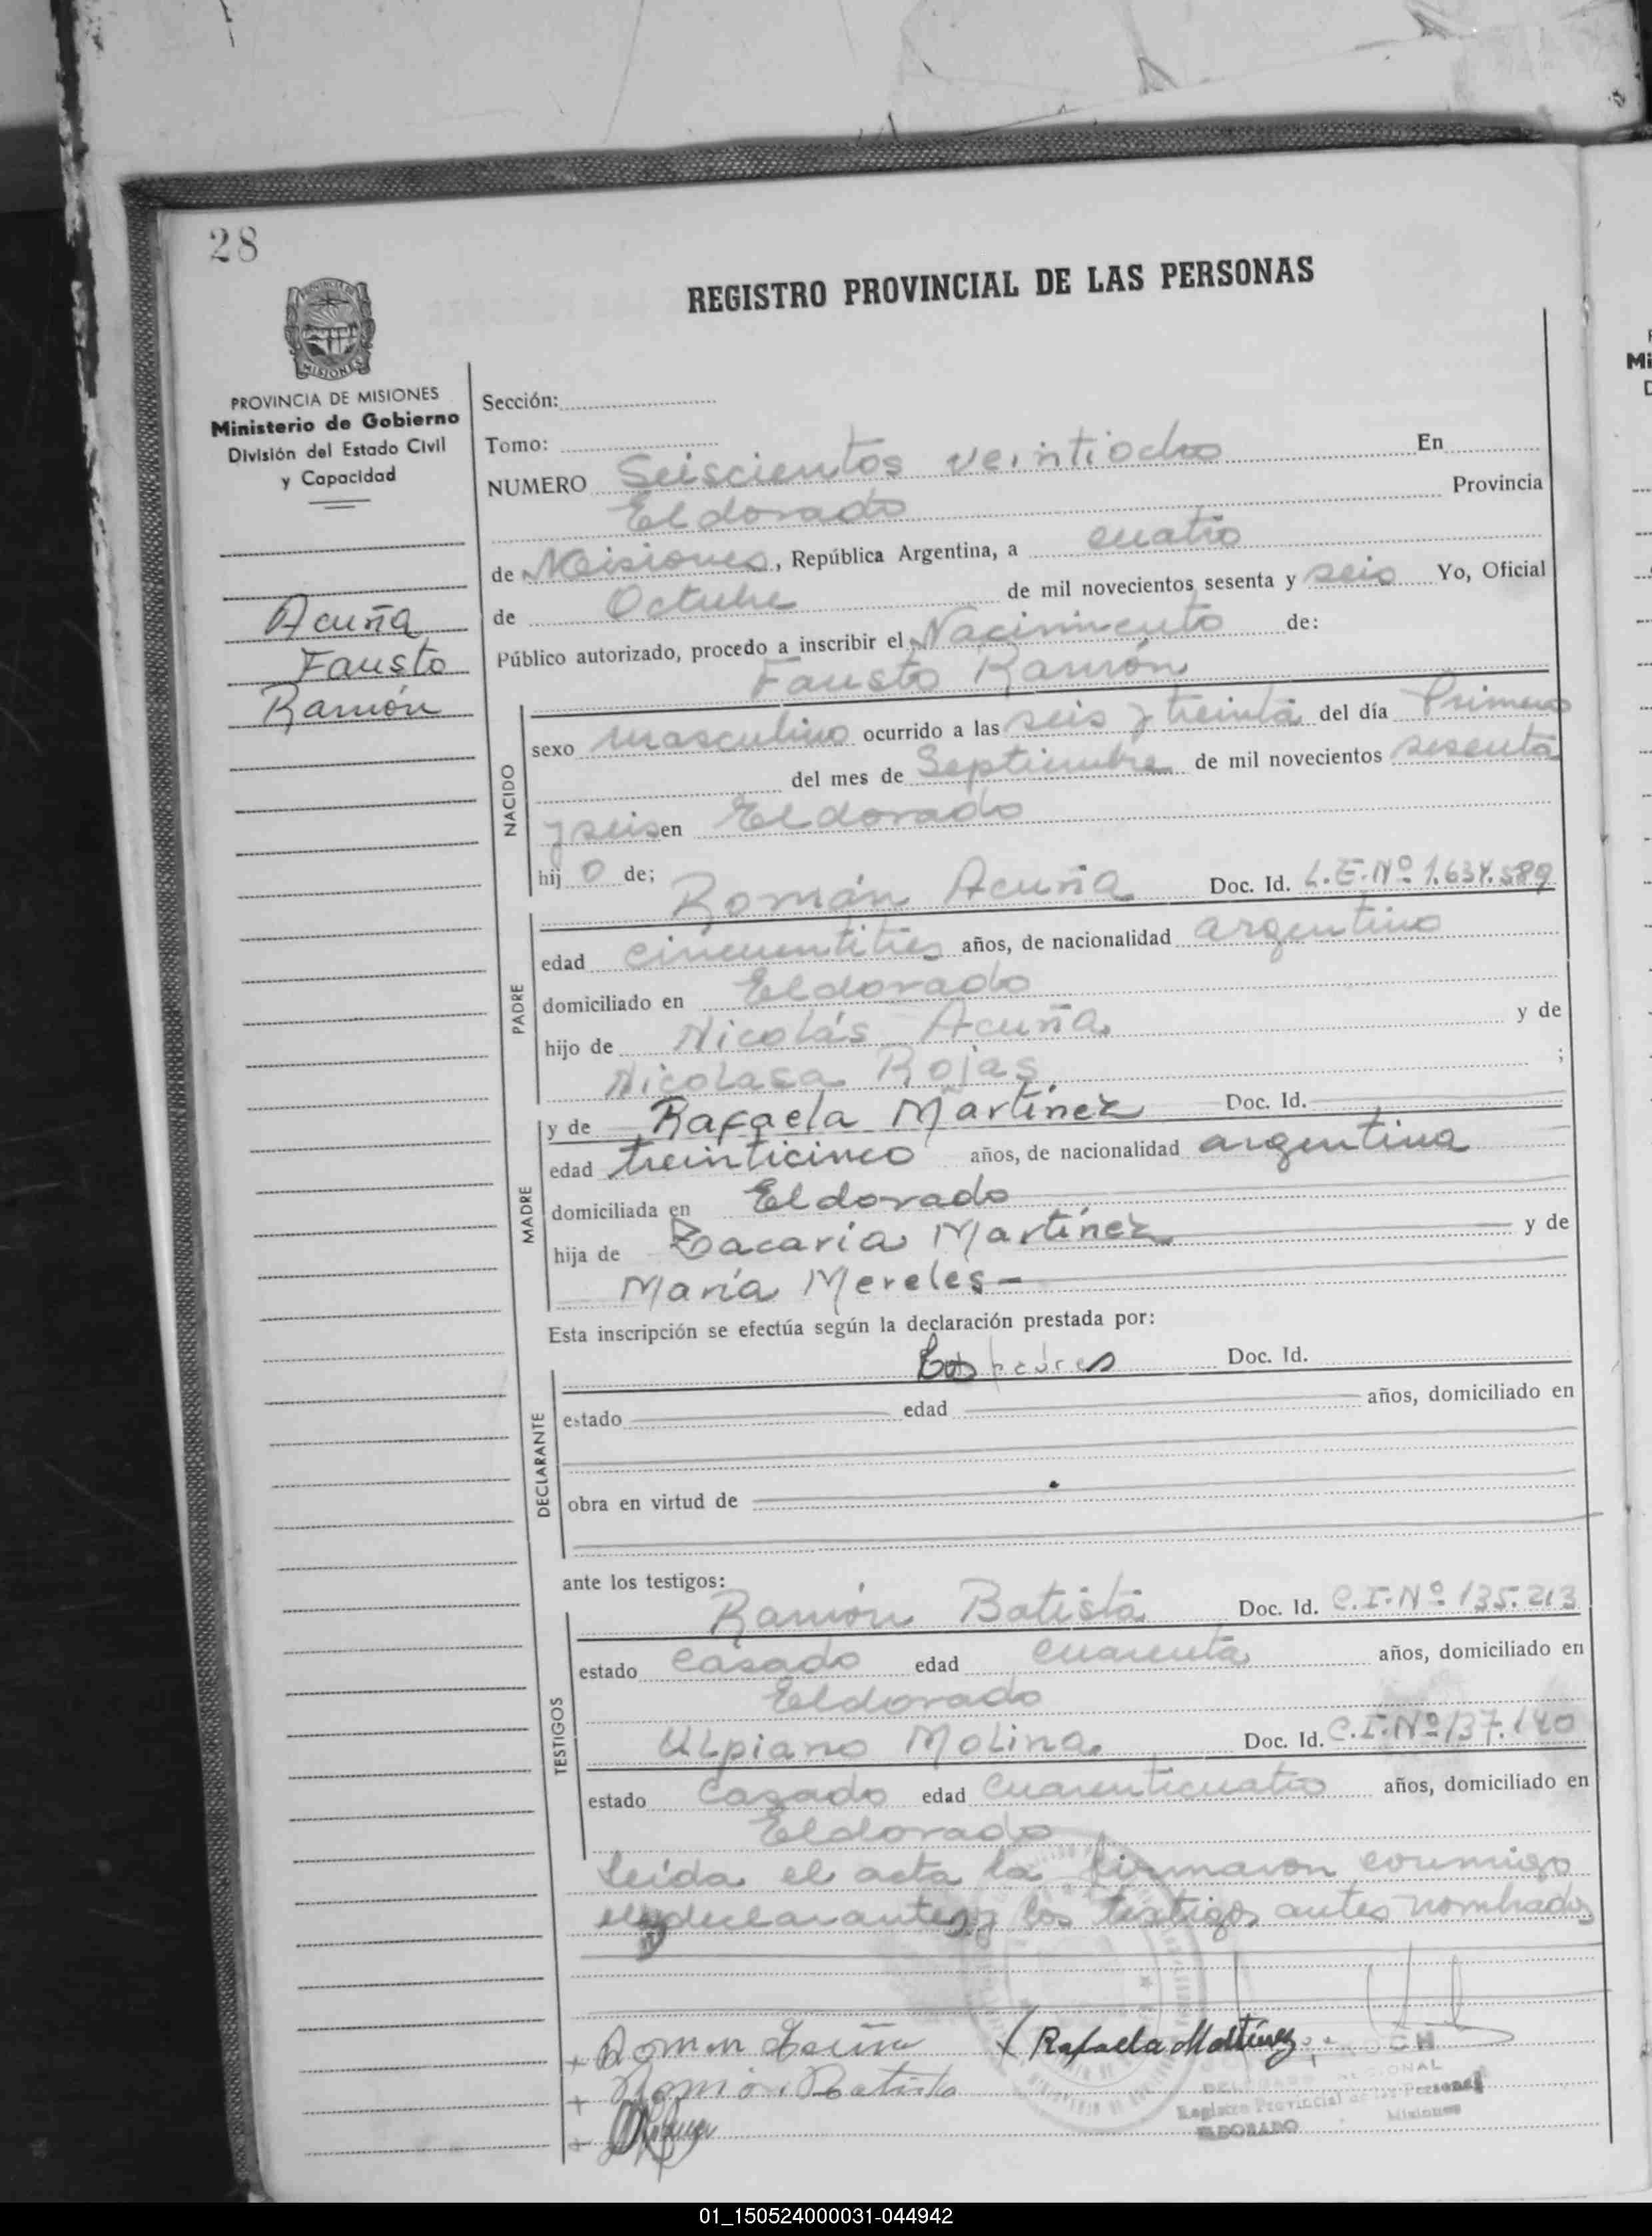 28
REGISTRO PROVINCIAL DE LAS PERSONAS
MISIONES
PROVINCIA DE MISIONES
Ministerio de Gobierno
División del Estado Civil
y Capacidad
Acuña
Fausto
Ramón
Sección:
Tomo:
NUMERO Seiscientos veintiocho En
Eldorado Provincia
de Misiones, República Argentina, a cuatro
de Octubre de mil novecientos sesenta y seis Yo, Oficial
Público autorizado, procedo a inscribir el Nacimiento de:
Fausto Ramón
NACIDO
sexo masculino ocurrido a las seis y treinta del día Primero
del mes de Septiembre de mil novecientos sesenta
y seis en Eldorado
hij o de;
Román Acuña Doc. Id. L.E.Nº 1.634.589
PADRE
edad cincuentitres años, de nacionalidad argentino
domiciliado en Eldorado
hijo de Nicolás Acuña y de
Nicolasa Rojas ;
MADRE
y de Rafaela Martínez Doc. Id.
edad treinticinco años, de nacionalidad argentina
domiciliada en Eldorado
hija de Zacaria Martínez y de
María Mereles
Esta inscripción se efectúa según la declaración prestada por:
DECLARANTE
Los padres Doc. Id.
estado edad años, domiciliado en
obra en virtud de
ante los testigos:
TESTIGOS
Ramón Batista Doc. Id. C.I.Nº 135.213
estado casado edad cuarenta años, domiciliado en
Eldorado
Ulpiano Molina Doc. Id. C.I.Nº 137.140
estado casado edad cuarenticuatro años, domiciliado en
Eldorado
leída el acta la firmaron conmigo
declarantes y los testigos antes nombrados
Roman Acuña Rafaela Martínez
Ramón Batista
Registro Provincial de las Personas
ELDORADO Misiones
Mi
01_150524000031-044942